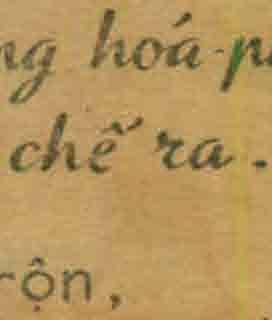 ng hoá-p
chế ra.
rộn,